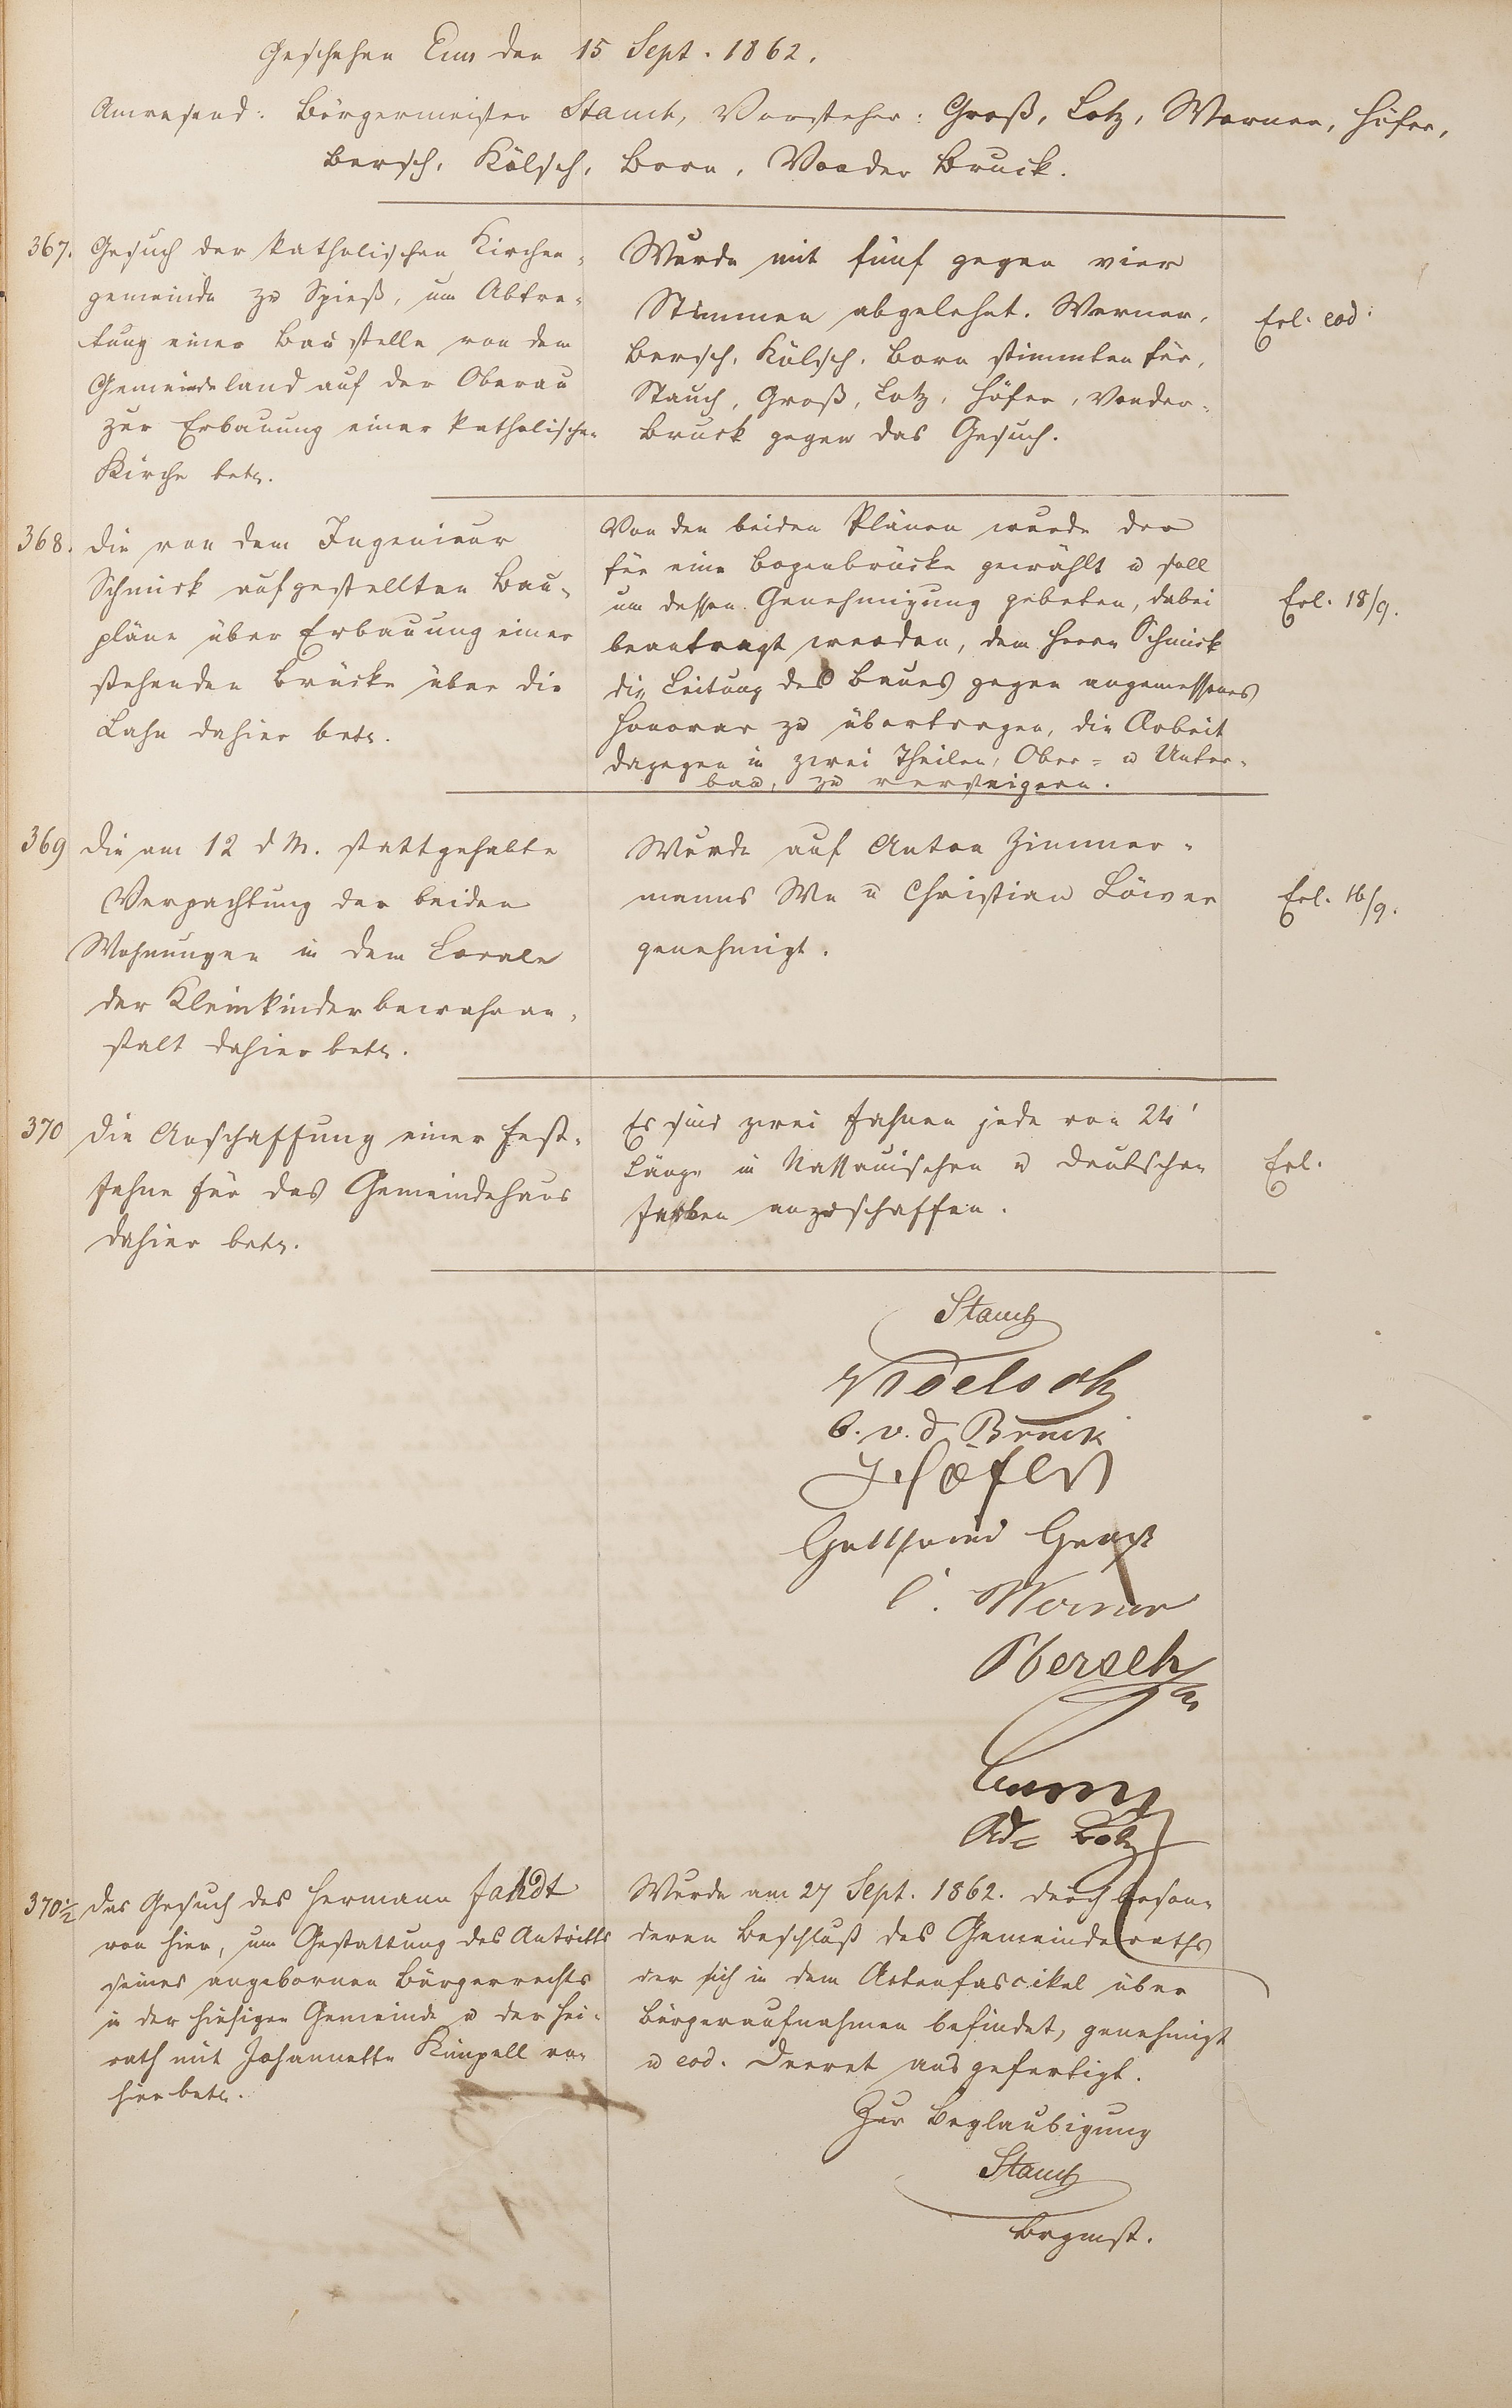 Geschehen Ems den 15 Sept. 1862.
Anwesend: Bürgermeister Stauch, Vorsteher: Groß, Lotz, Werner, Höfer,
Bersch, Kölsch, Born, Vonder Bruck.
367. Gesuch der katholischen Kirchen-
gemeinde zu Spieß, um Abtre-
tung einer Baustelle von dem
Gemeindeland auf der Oberau
zur Erbauung einer katholischen
Kirche betr.
Wurde mit fünf gegen vier
Stimmen abgelehnt. Werner,
Bersch, Kölsch, Born stimmten für,
Stauch, Groß, Lotz, Höfer, Vonder-
Bruck gegen das Gesuch.
Erl. eod.
368. Die von dem Ingenieur
Schmick aufgestellten Bau-
pläne über Erbauung einer
stehenden Brücke über die
Lahn dahier betr.
Von den beiden Plänen wurde der
für eine Bogenbrücke gewählt u soll
um dessen Genehmigung gebeten, dabei
beantragt werden, dem Herrn Schmick
die Leitung des Baues gegen angemessenes
Honorar zu übertragen, die Arbeit
dagegen in zwei Theilen, Ober- u Unter-
bau, zu versteigern.
Erl. 18/9.
369 Die am 12 d M. stattgehabte
Verpachtung der beiden
Wohnungen in dem Locale
der Kleinkinderbewahran-
stalt dahier betr.
Wurde auf Anton Zimmer-
manns We u Christian Löwer
genehmigt.
Erl. 16/9.
370 Die Anschaffung einer Fest-
fahne für das Gemeindehaus
dahier betr.
Es sind zwei Fahnen jede von 24'
Länge in Nassauischen u deutschen
Farben anzuschaffen.
Erl.
Stauch
Koelsch
C. v. d Bruck
J Höfer
Gottfried Groß
C. Werner
Bersch
Born
Ad. Lotz
370 1/2 Das Gesuch des Hermann Jahdt
von hier, um Gestattung des Antritts
seines angebornen Bürgerrechts
in der hiesigen Gemeinde u der Hei-
rath mit Johannette Kimpell von
hier betr.
Wurde am 27 Sept. 1862. durch beson-
deren Beschluß des Gemeinderaths
der sich in dem Actenfascikel über
Bürgeraufnahmen befindet, genehmigt
u eod. Decret ausgefertigt.
Zur Beglaubigung
Stauch
Brgmst.